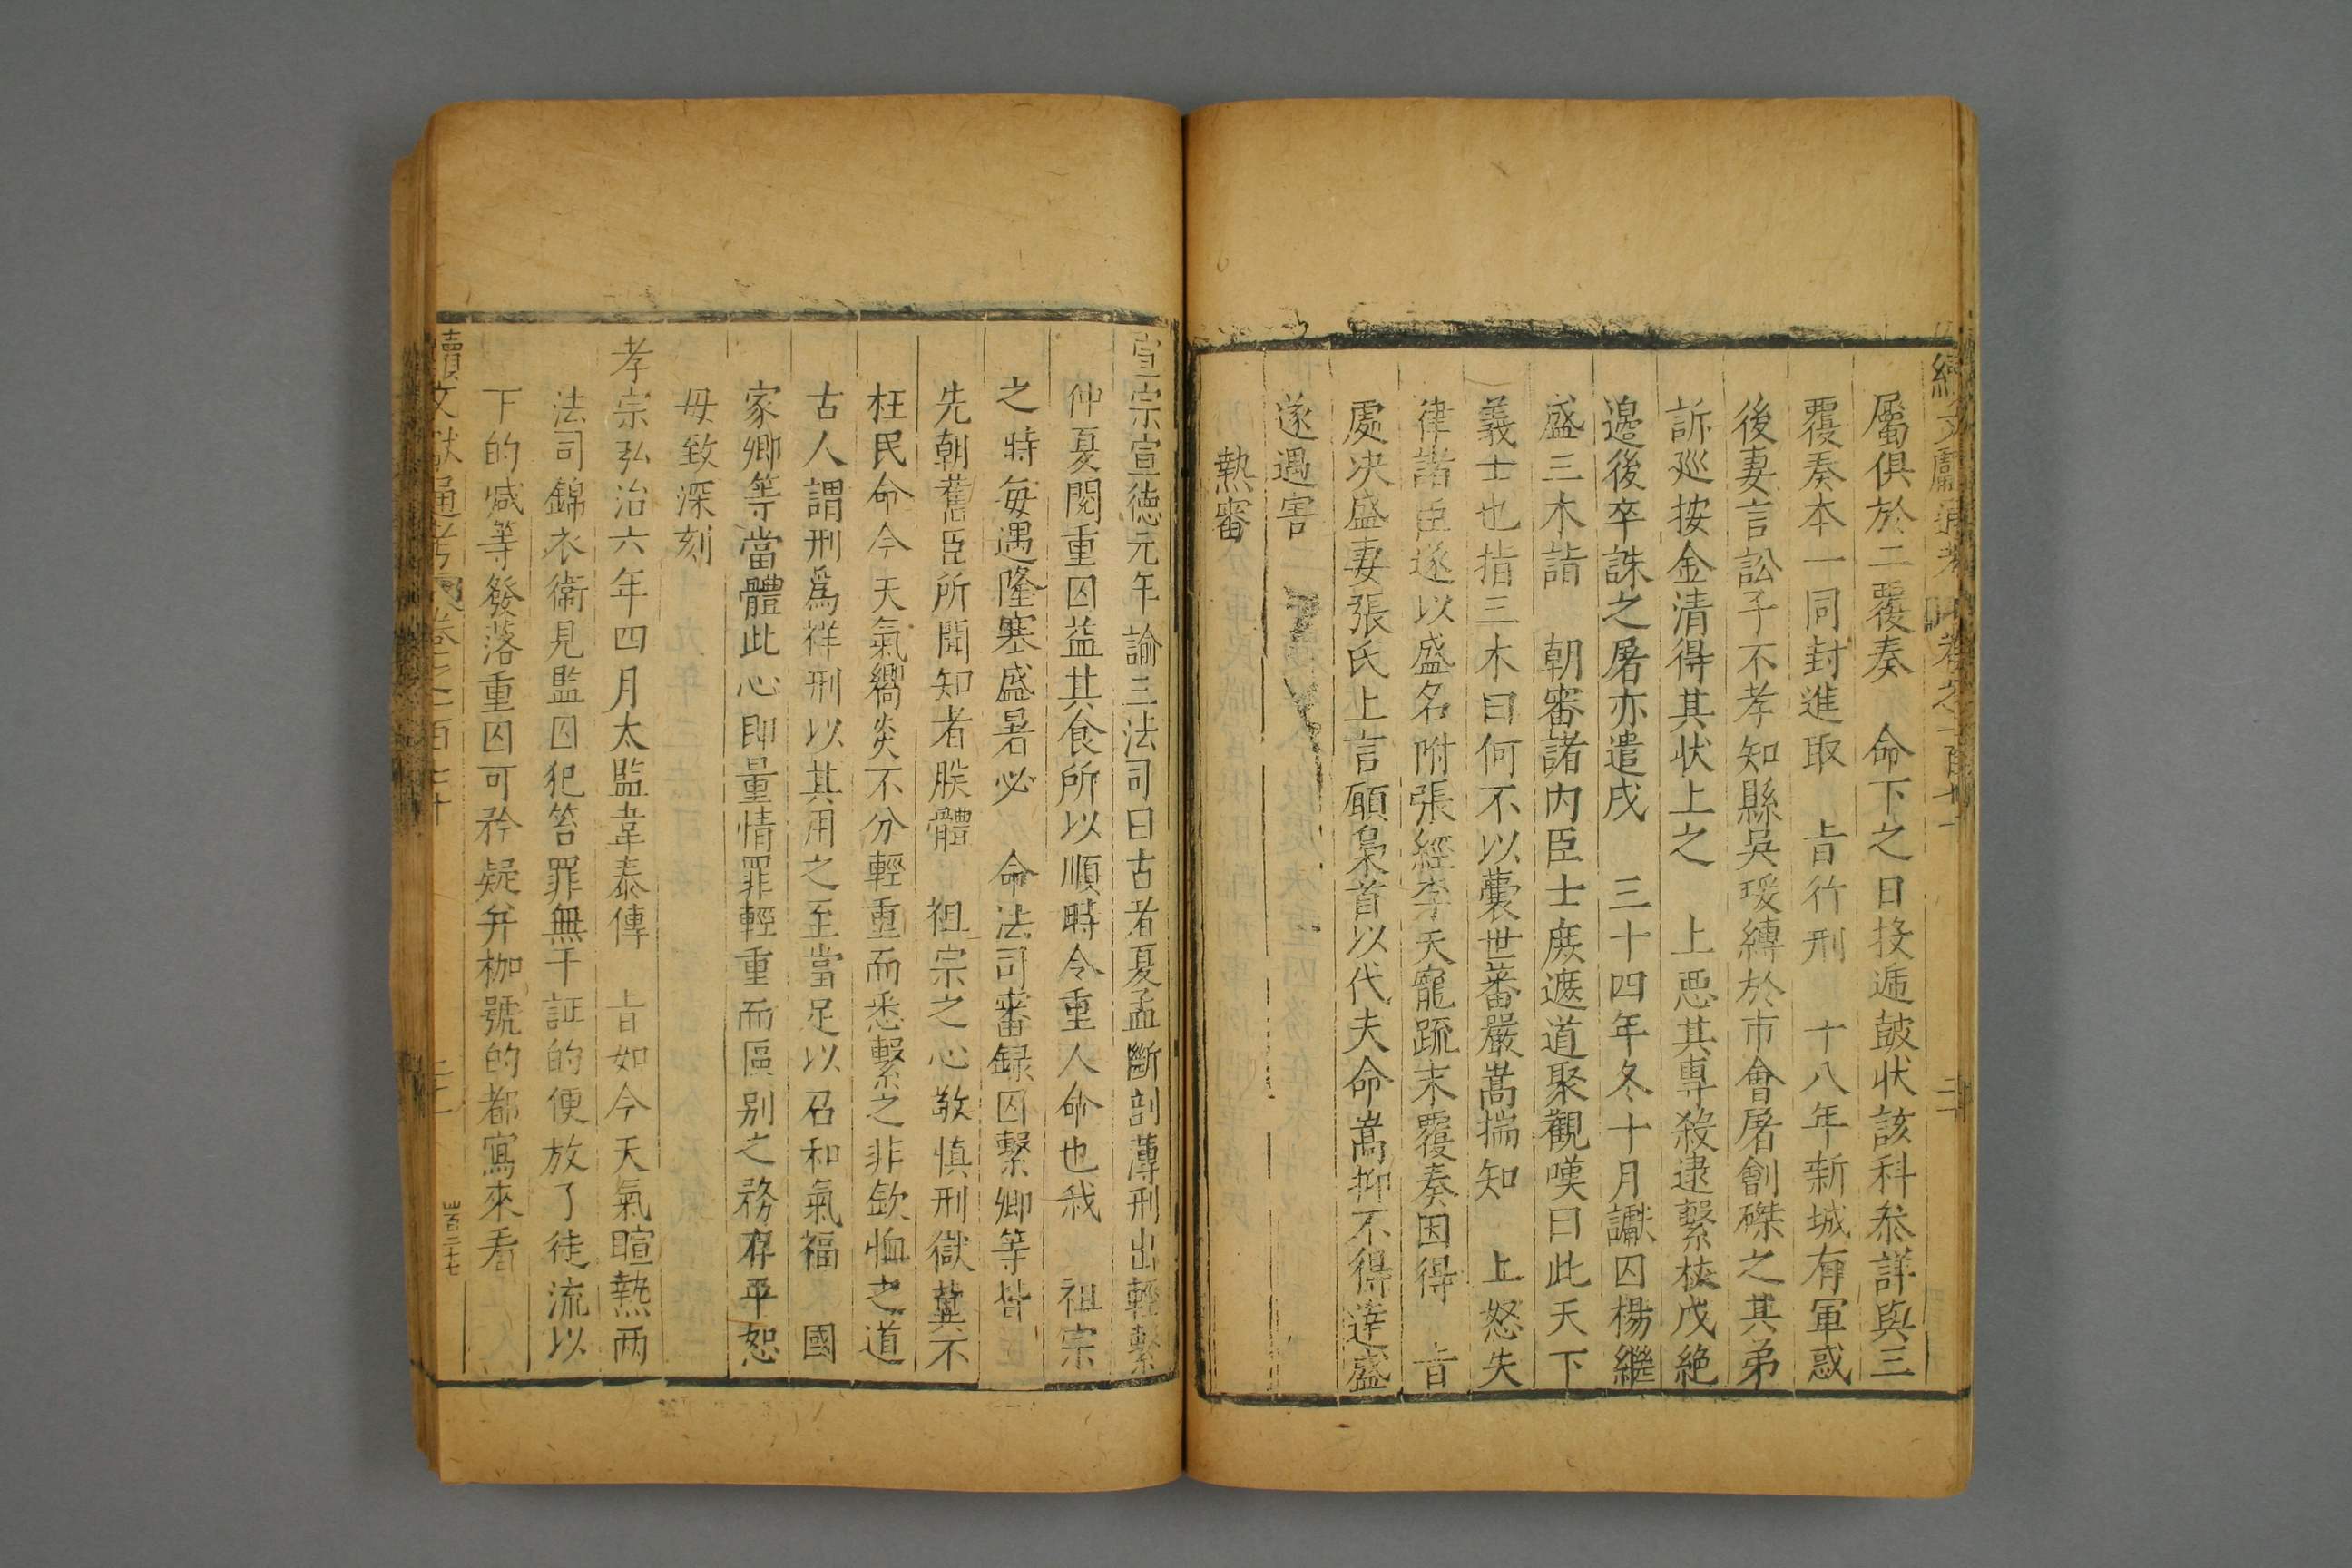 續文獻通考 卷之一百七十
屬俱於二覆奏 命下之日投遞鼓状該科叅詳與三
覆奏本一同封進取 㫖行刑 十八年新城有軍惑
後妻言訟子不孝知縣吳瑗縛於市會屠創磔之其弟
訴廵按金清得其状上之 上惡其專殺逮繫校戊絶
邉後卒誅之屠亦遣戍 三十四年冬十月讞囚楊繼
盛三木詣 朝審諸内臣士庻遮道聚觀嘆曰此天下
義士也指三木曰何不以囊世蕃嚴嵩揣知 上怒失
律諸臣遂以盛名附張經李天寵疏末覆奏因得 㫖
處决盛妻張氏上言願梟首以代夫命嵩抑不得達盛
遂遇害
熱審
宣宗宣德元年諭三法司曰古者夏孟斷剖薄刑出輕繫
仲夏閱重囚益其食所以順時令重人命也我 祖宗
之時每遇隆寒盛暑必 命法司審録囚繫卿等皆
先朝舊臣所聞知者朕體 祖宗之心敬慎刑獄冀不
枉民命今天氣嚮炎不分輕重而悉繫之非欽恤之道
古人謂刑爲祥刑以其用之至當足以召和氣福 國
家卿等當體此心即量情罪輕重而區别之務存平恕
毋致深刻
孝宗弘治六年四月太監韋泰傳 㫖如今天氣暄熱两
法司錦衣衛見監囚犯笞罪無干証的便放了徒流以
下的减等發落重囚可矜疑并枷號的都寫來看
續文獻通考 卷之一百七十